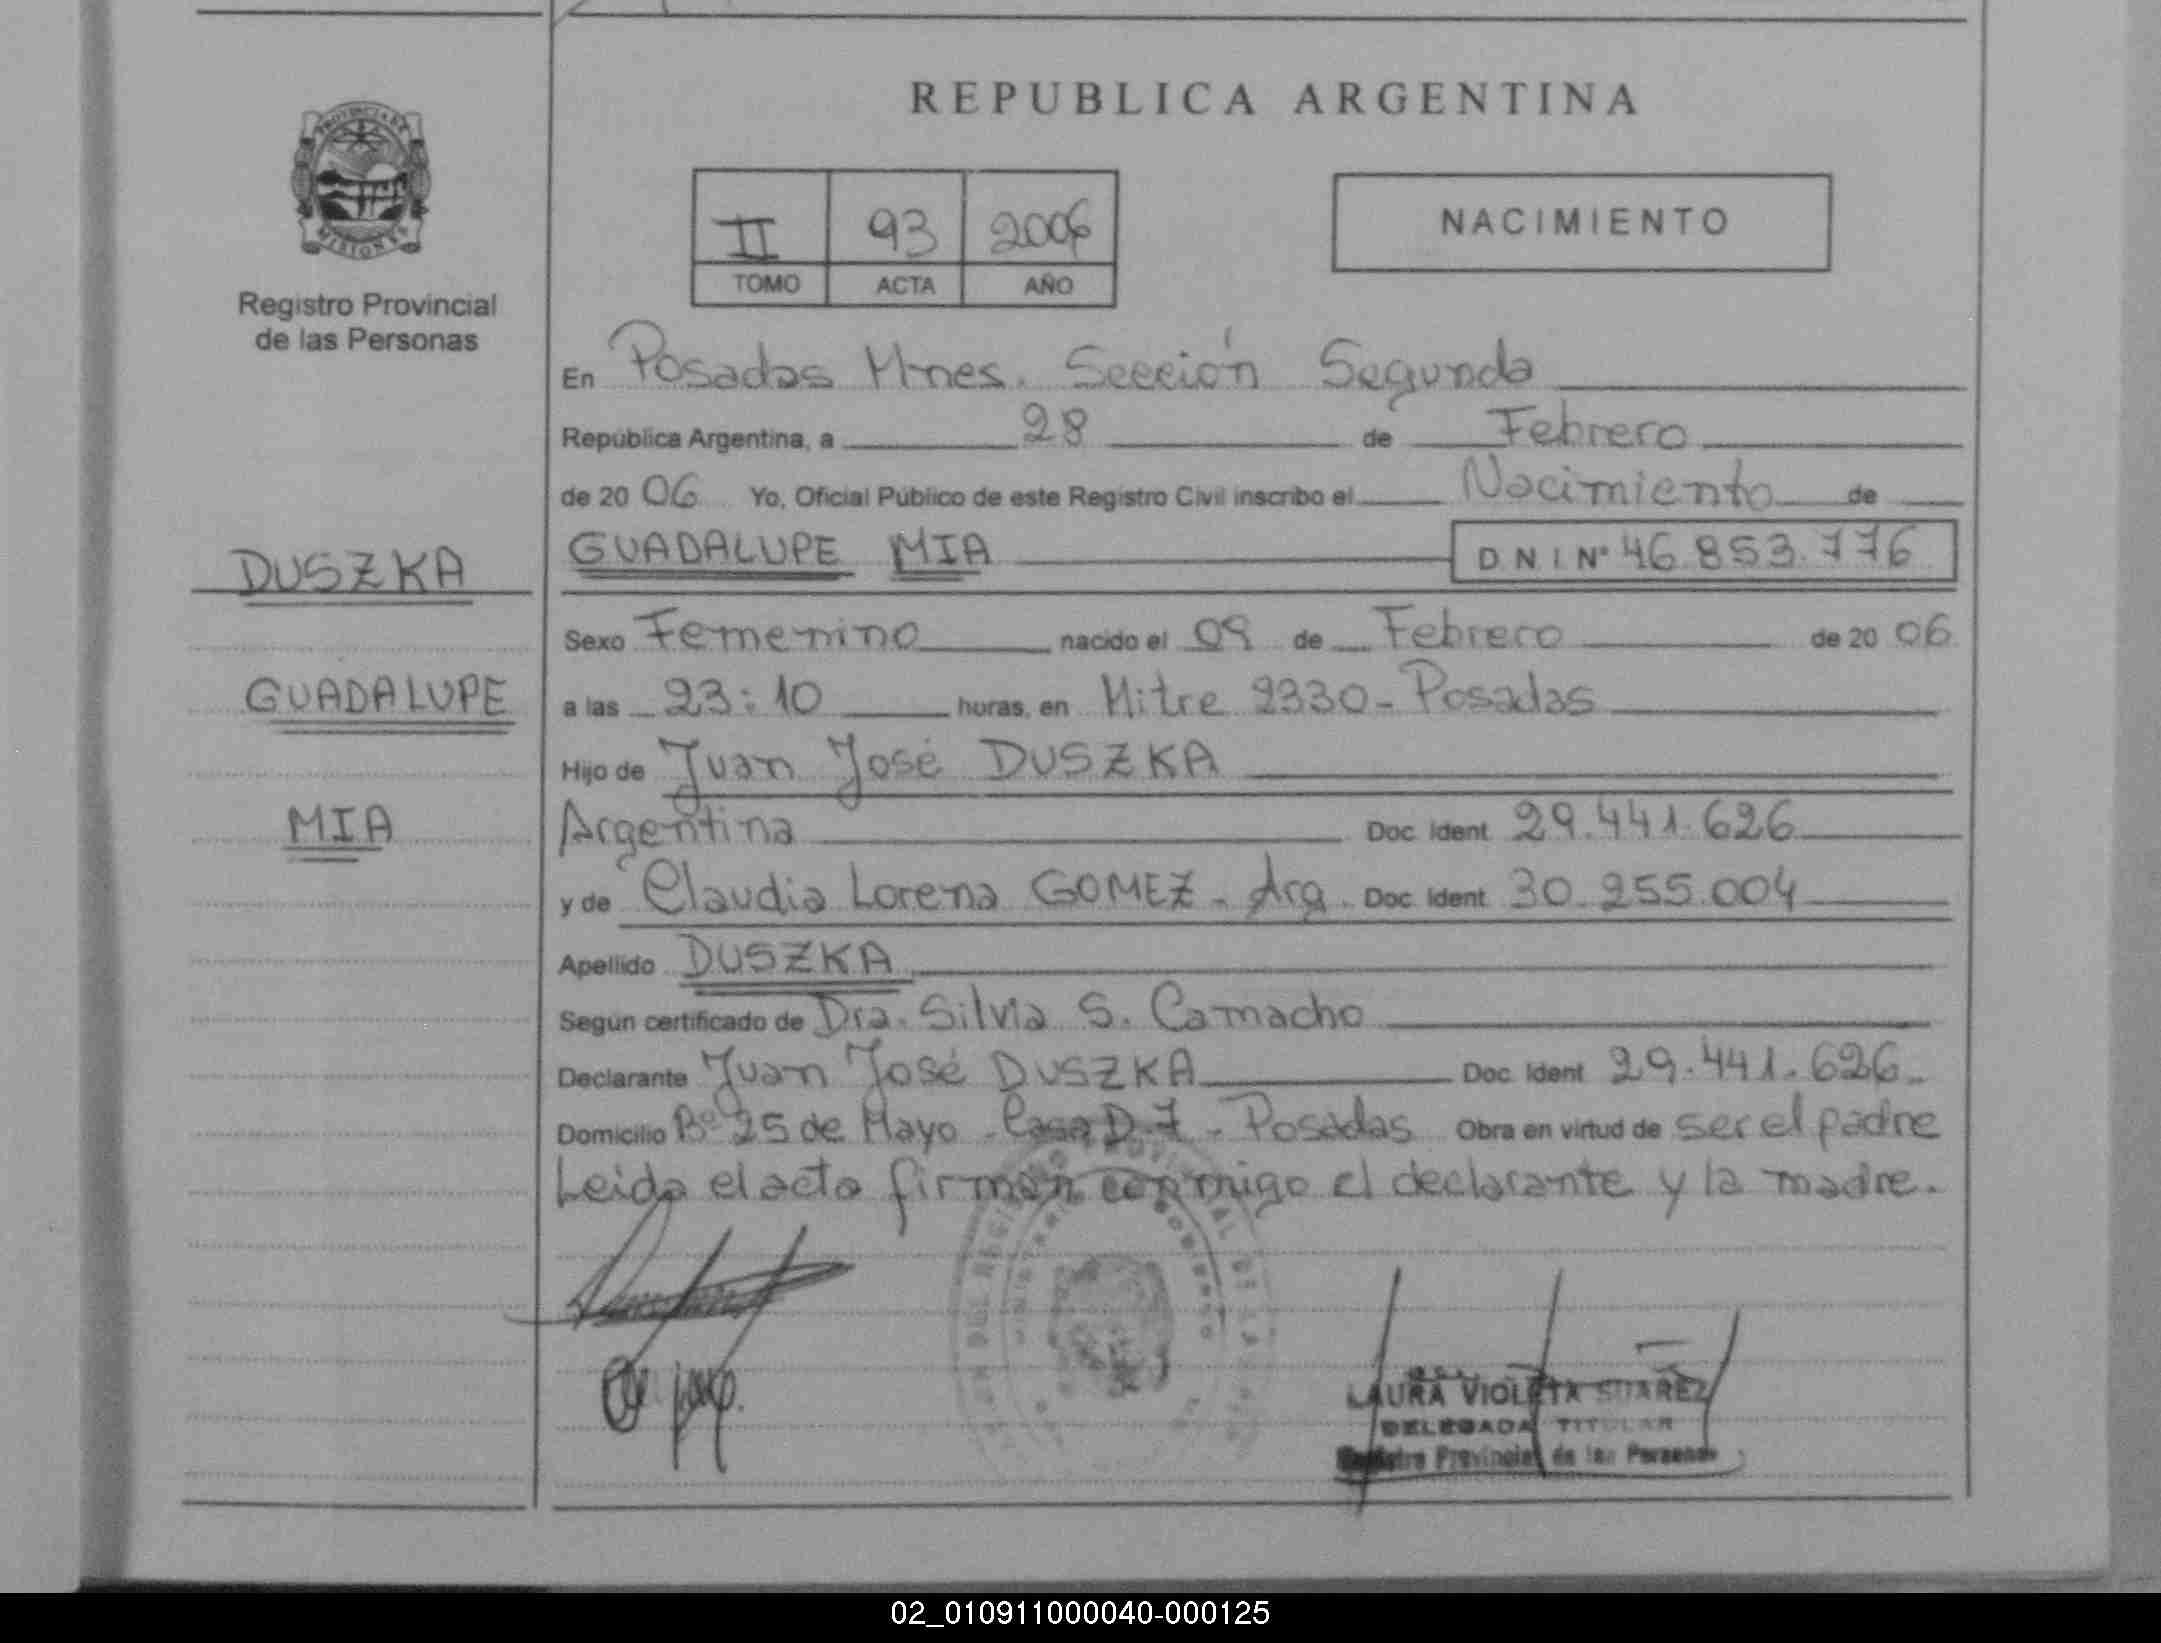 REPUBLICA ARGENTINA
PROVINCIA DE
MISIONES
Registro Provincial
de las Personas
II 93 2006
TOMO ACTA AÑO
NACIMIENTO
En Posadas Mnes. Sección Segunda
República Argentina, a 28 de Febrero
de 20 06 Yo, Oficial Público de este Registro Civil inscribo el Nacimiento de
GUADALUPE MIA D N I Nº 46.853.776
DUSZKA
GUADALUPE
MIA
Sexo Femenino nacido el 09 de Febrero de 20 06
a las 23:10 horas, en Mitre 2330 - Posadas
Hijo de Juan José DUSZKA
Argentina Doc. Ident 29.441.626
y de Claudia Lorena GOMEZ - Arg. Doc. Ident 30.255.004
Apellido DUSZKA
Según certificado de Dra. Silvia S. Camacho
Declarante Juan José DUSZKA Doc. Ident 29.441.626
Domicilio Bº 25 de Mayo - Casa D-7 - Posadas Obra en virtud de ser el padre
Leida el acta firman conmigo el declarante y la madre.
LAURA VIOLETA SUAREZ
DELEGADA TITULAR
Registro Provincial de las Personas
02_010911000040-000125